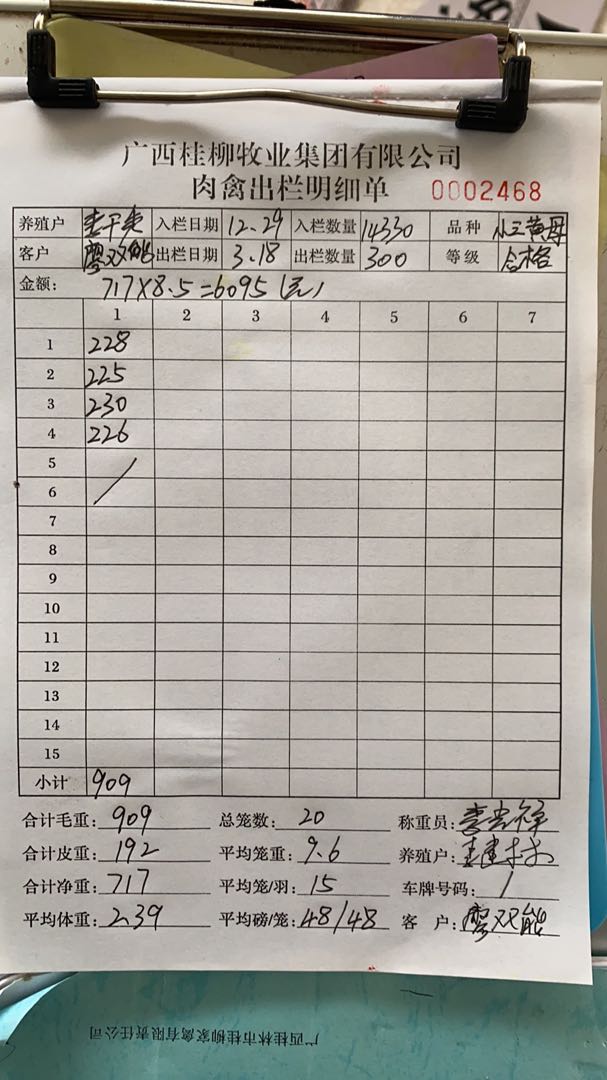 广西桂柳牧业集团有限公司
肉禽出栏明细单 0002468
养殖户 入栏日期 12.29 入栏数量 14330 品种 小三黄母
客户 廖双能 出栏日期 3.18 出栏数量 300 等级 合格
金额: 717×8.5=6095(元)
1 2 3 4 5 6 7
1 228
2 225
3 230
4 226
5
6
7
8
9
10
11
12
13
14
15
小计 909
合计毛重: 909 总笼数: 20 称重员:
合计皮重: 192 平均笼重: 9.6 养殖户:
合计净重: 717 平均笼/羽: 15 车牌号码: /
平均体重: 2.39 平均磅/笼: 48/48 客 户: 廖双能
广西桂林市桂柳家禽有限责任公司